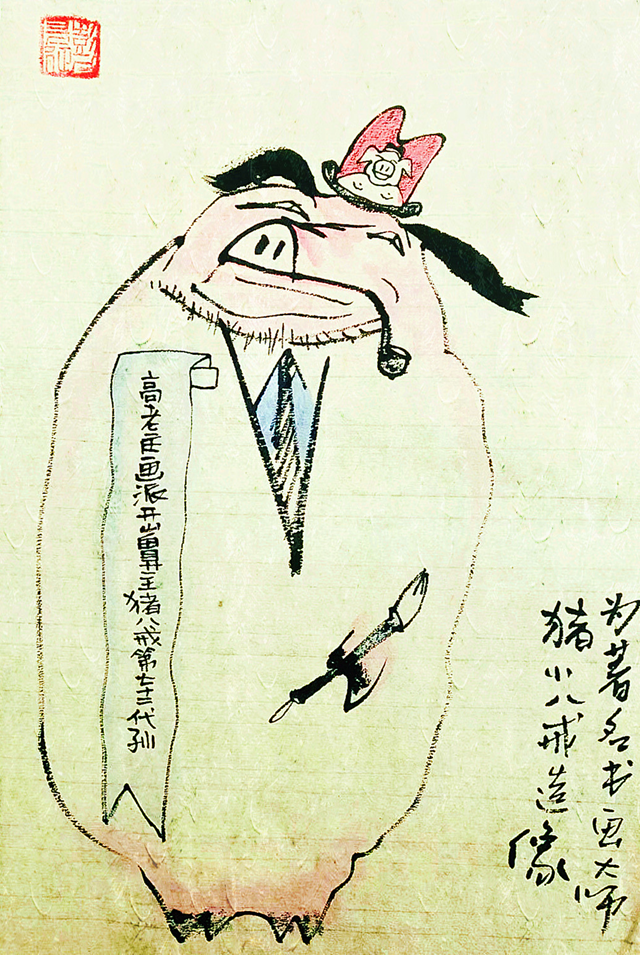 为著名书画大师
猪小八戒造像
高老庄画派开山鼻主猪八戒第七十二代孙